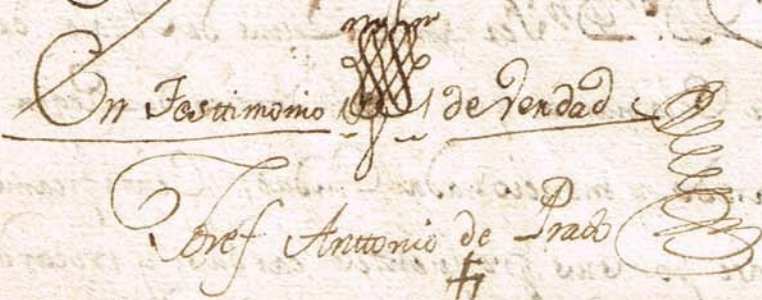 En Testtimonio de Verdad
Josef Anttonio de Prado